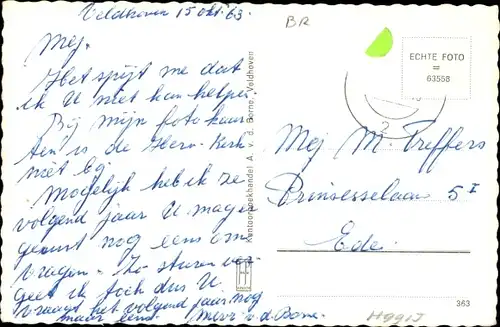 Veldhoven 15 okt. 63
BR
Mej.
Het spijt me dat
ik U niet kan helpen
Bij mijn foto kaar
ten is de Herv. Kerk
niet bij.
Mogelijk heb ik ze
volgend jaar U mag er
gerust nog eens om
vragen. Zo sturen
geet ik toch dus U
vraagt het volgend jaar nog
maar eens. Mevr v.d. Borne.
Kantoorboekhandel A. v. d. Borne, Veldhoven
ECHTE FOTO
=
63558
2
Mej M. Treffers
Prinsesselaan 5 I
Ede.
363
H991J